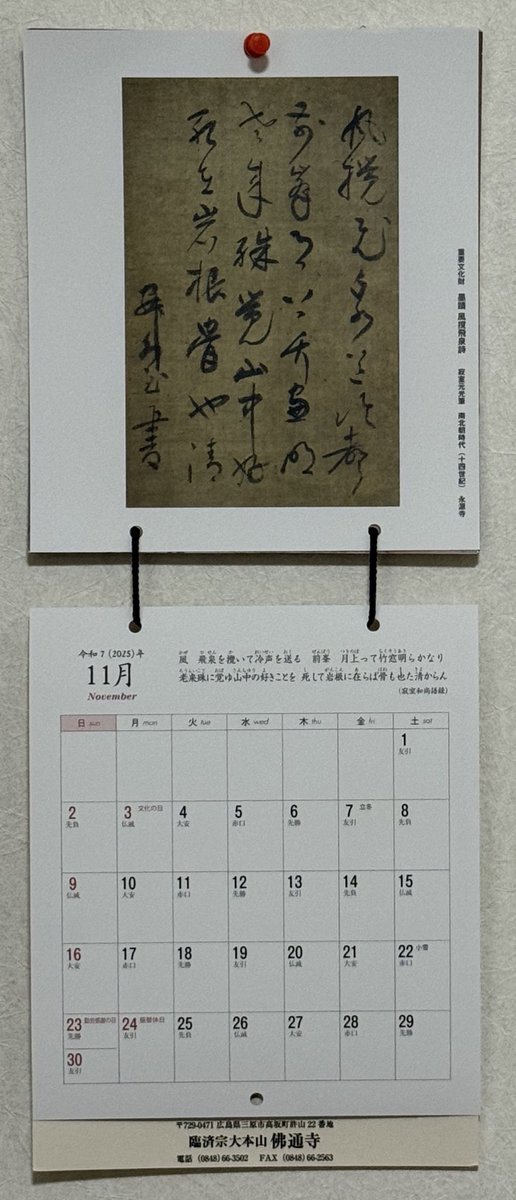 風攪飛泉送冷聲
前峯月上竹窓明
老来殊覺山中好
死在岩根骨也清
重要文化財 墨蹟 風攪飛泉詩 寂室元光筆 南北朝時代（十四世紀） 永源寺
令和7(2025)年
11月
November
風 飛泉を攪いて冷声を送る 前峯 月上って竹窓明らかなり
老来殊に覚ゆ山中の好きことを 死して岩根に在らば骨も也た清からん
（寂室和尚語録）
日 sun 月 mon 火 tue 水 wed 木 thu 金 fri 土 sat
1
友引
2 3 文化の日 4 5 6 7 立冬 8
先負 仏滅 大安 赤口 先勝 友引 先負
9 10 11 12 13 14 15
仏滅 大安 赤口 先勝 友引 先負 仏滅
16 17 18 19 20 21 22 小雪
大安 赤口 先勝 友引 仏滅 大安 赤口
23 勤労感謝の日 24 振替休日 25 26 27 28 29
先勝 友引 先負 仏滅 大安 赤口 先勝
30
友引
〒729-0471 広島県三原市高坂町許山22番地
臨済宗大本山 佛通寺
電話 (0848)66-3502 FAX (0848)66-2563